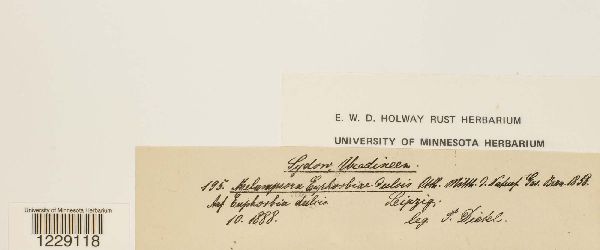 E. W. D. HOLWAY RUST HERBARIUM
UNIVERSITY OF MINNESOTA HERBARIUM
Sydow, Uredineen.
195. Melampsora Euphorbiae-dulcis Otth. Mitth. d. Naturf. Ges. Bern. 1868.
Auf Euphorbia dulcis Leipzig;
10. 1888. leg. P. Dietel.
University of Minnesota Herbarium
1229118